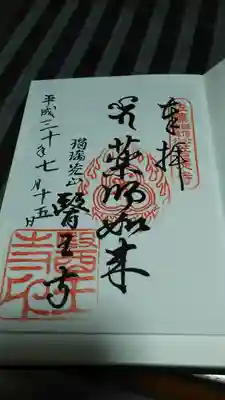 奉拝
薬師如来
瑠璃光山
醫王寺
平成三十年七月十五日